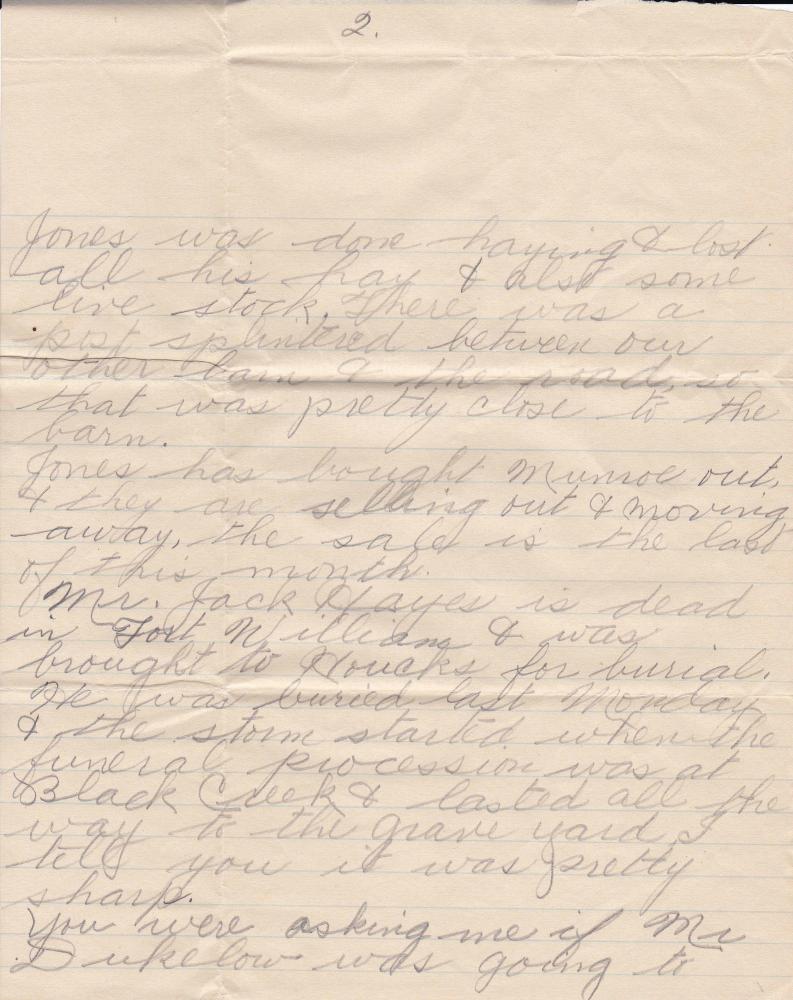 2.
Jones was done haying & lost
all his hay & also some
live stock. There was a
post splintered between our
other barn & the road, so
that was pretty close to the
barn.
Jones has bought Munroe out,
& they are selling out & moving
away, the sale is the last
of this month.
Mr. Jack Hayes is dead
in Fort William & was
brought to Houcks for burial.
He was buried last Monday
& the storm started when the
funeral procession was at
Black Creek & lasted all the
way to the grave yard, I
tell you it was pretty
sharp.
You were asking me if Mr
Dukelow was going to